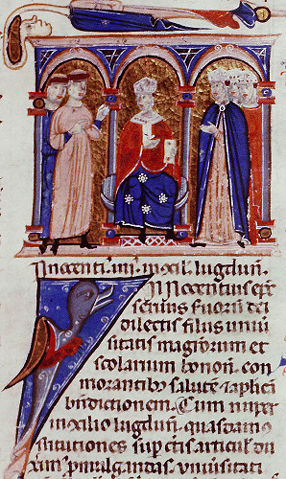 Innocenti. iiii. in cōcil. lugduñ.
INnocentius ep̄s
seruus seruorū dei
dilectis filiis uniuer
sitatis magistrorum et
scolarium bonoñ. com
morantibꝫ salutē ⁊ aplicā
bñdictionem. Cum nuper
in cōcilio lugduñ. quasdam cōn
stitutiones sup c̄tis articulis du
xim᷒ promulgandas. uniu̾sitati